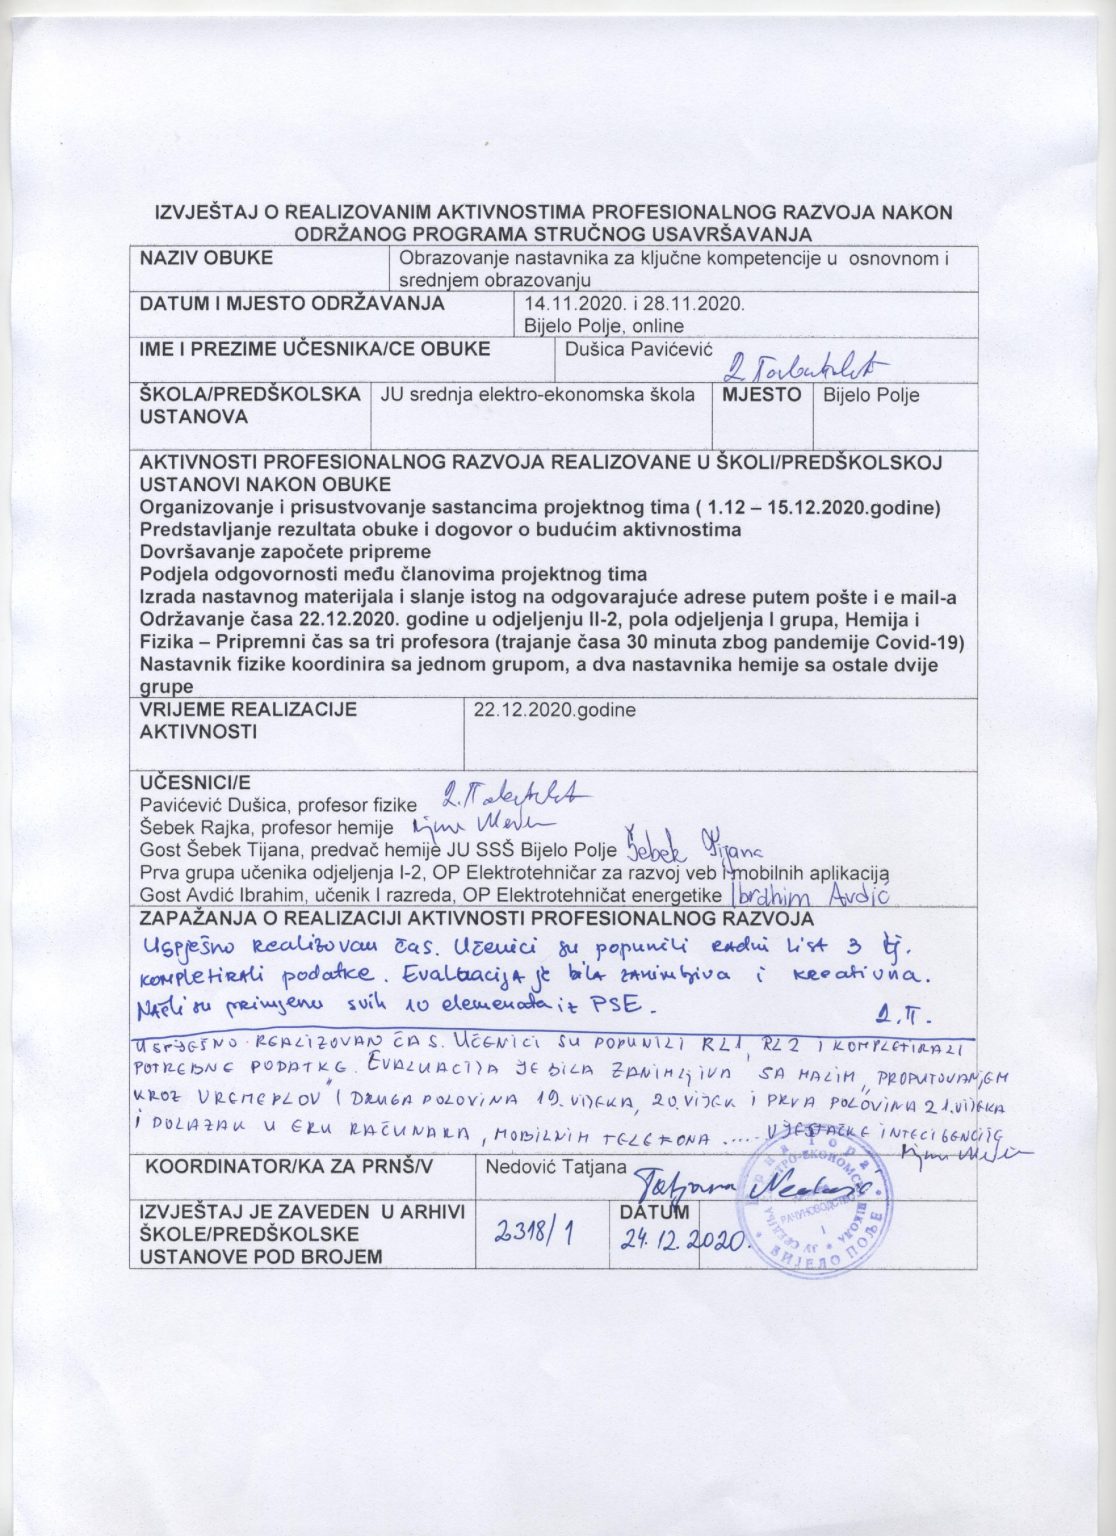 IZVJEŠTAJ O REALIZOVANIM AKTIVNOSTIMA PROFESIONALNOG RAZVOJA NAKON
ODRŽANOG PROGRAMA STRUČNOG USAVRŠAVANJA
NAZIV OBUKE Obrazovanje nastavnika za ključne kompetencije u osnovnom i
srednjem obrazovanju
DATUM I MJESTO ODRŽAVANJA 14.11.2020. i 28.11.2020.
Bijelo Polje, online
IME I PREZIME UČESNIKA/CE OBUKE Dušica Pavićević
ŠKOLA/PREDŠKOLSKA JU srednja elektro-ekonomska škola MJESTO Bijelo Polje
USTANOVA
AKTIVNOSTI PROFESIONALNOG RAZVOJA REALIZOVANE U ŠKOLI/PREDŠKOLSKOJ
USTANOVI NAKON OBUKE
Organizovanje i prisustvovanje sastancima projektnog tima ( 1.12 – 15.12.2020.godine)
Predstavljanje rezultata obuke i dogovor o budućim aktivnostima
Dovršavanje započete pripreme
Podjela odgovornosti među članovima projektnog tima
Izrada nastavnog materijala i slanje istog na odgovarajuće adrese putem pošte i e mail-a
Održavanje časa 22.12.2020. godine u odjeljenju II-2, pola odjeljenja I grupa, Hemija i
Fizika – Pripremni čas sa tri profesora (trajanje časa 30 minuta zbog pandemije Covid-19)
Nastavnik fizike koordinira sa jednom grupom, a dva nastavnika hemije sa ostale dvije
grupe
VRIJEME REALIZACIJE 22.12.2020.godine
AKTIVNOSTI
UČESNICI/E
Pavićević Dušica, profesor fizike
Šebek Rajka, profesor hemije
Gost Šebek Tijana, predvač hemije JU SSŠ Bijelo Polje Šebek Tijana
Prva grupa učenika odjeljenja I-2, OP Elektrotehničar za razvoj veb i mobilnih aplikacija
Gost Avdić Ibrahim, učenik I razreda, OP Elektrotehničat energetike Ibrahim Avdić
ZAPAŽANJA O REALIZACIJI AKTIVNOSTI PROFESIONALNOG RAZVOJA
Uspješno realizovan čas. Učenici su popunili radni list 3 tj.
kompletirali podatke. Evaluacija je bila zanimljiva i kreativna.
Našli su primjenu svih 10 elemenata iz PSE.
D.П.
USPJEŠNO REALIZOVAN ČAS. UČENICI SU POPUNILI RL1, RL2 I KOMPLETIRALI
POTREBNE PODATKE. EVALUACIJA JE BILA ZANIMLJIVA SA MALIM „PROPUTOVANJEM
KROZ VREMEPLOV" (DRUGA POLOVINA 19. VIJEKA, 20. VIJEK I PRVA POLOVINA 21. VIJEKA
I DOLAZAK U ERU RAČUNARA, MOBILNIH TELEFONA ..... VJEŠTAČKE INTELIGENCIJE
KOORDINATOR/KA ZA PRNŠ/V Nedović Tatjana Tatjana Nedović
IZVJEŠTAJ JE ZAVEDEN U ARHIVI 2318/1 DATUM
ŠKOLE/PREDŠKOLSKE 24.12.2020.
USTANOVE POD BROJEM
Црна Гора
БИЈЕЛО ПОЉЕ
РАЧУНОВОДСТВО
I